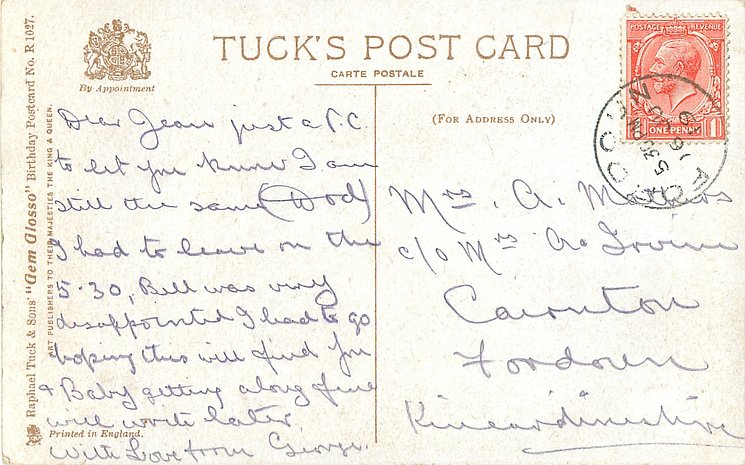 TUCK'S POST CARD
CARTE POSTALE
By Appointment
(FOR ADDRESS ONLY)
Raphael Tuck & Sons' "Gem Glosso" Birthday Postcard No. R 1027.
ART PUBLISHERS TO THEIR MAJESTIES THE KING & QUEEN.
Dear Jean just a P.C.
to let you know I am
still the same (Dod)
I had to leave on the
5-30, Bell was very
disappointed I had to go
hoping this will find you
& Baby getting along fine
will write later.
With Love from George.
Printed in England.
POSTAGE REVENUE
ONE PENNY 1
FORDOUN
5 30
Mrs. A.
c/o Mrs Irvine
Cairnton
Fordoun
Kincardineshire